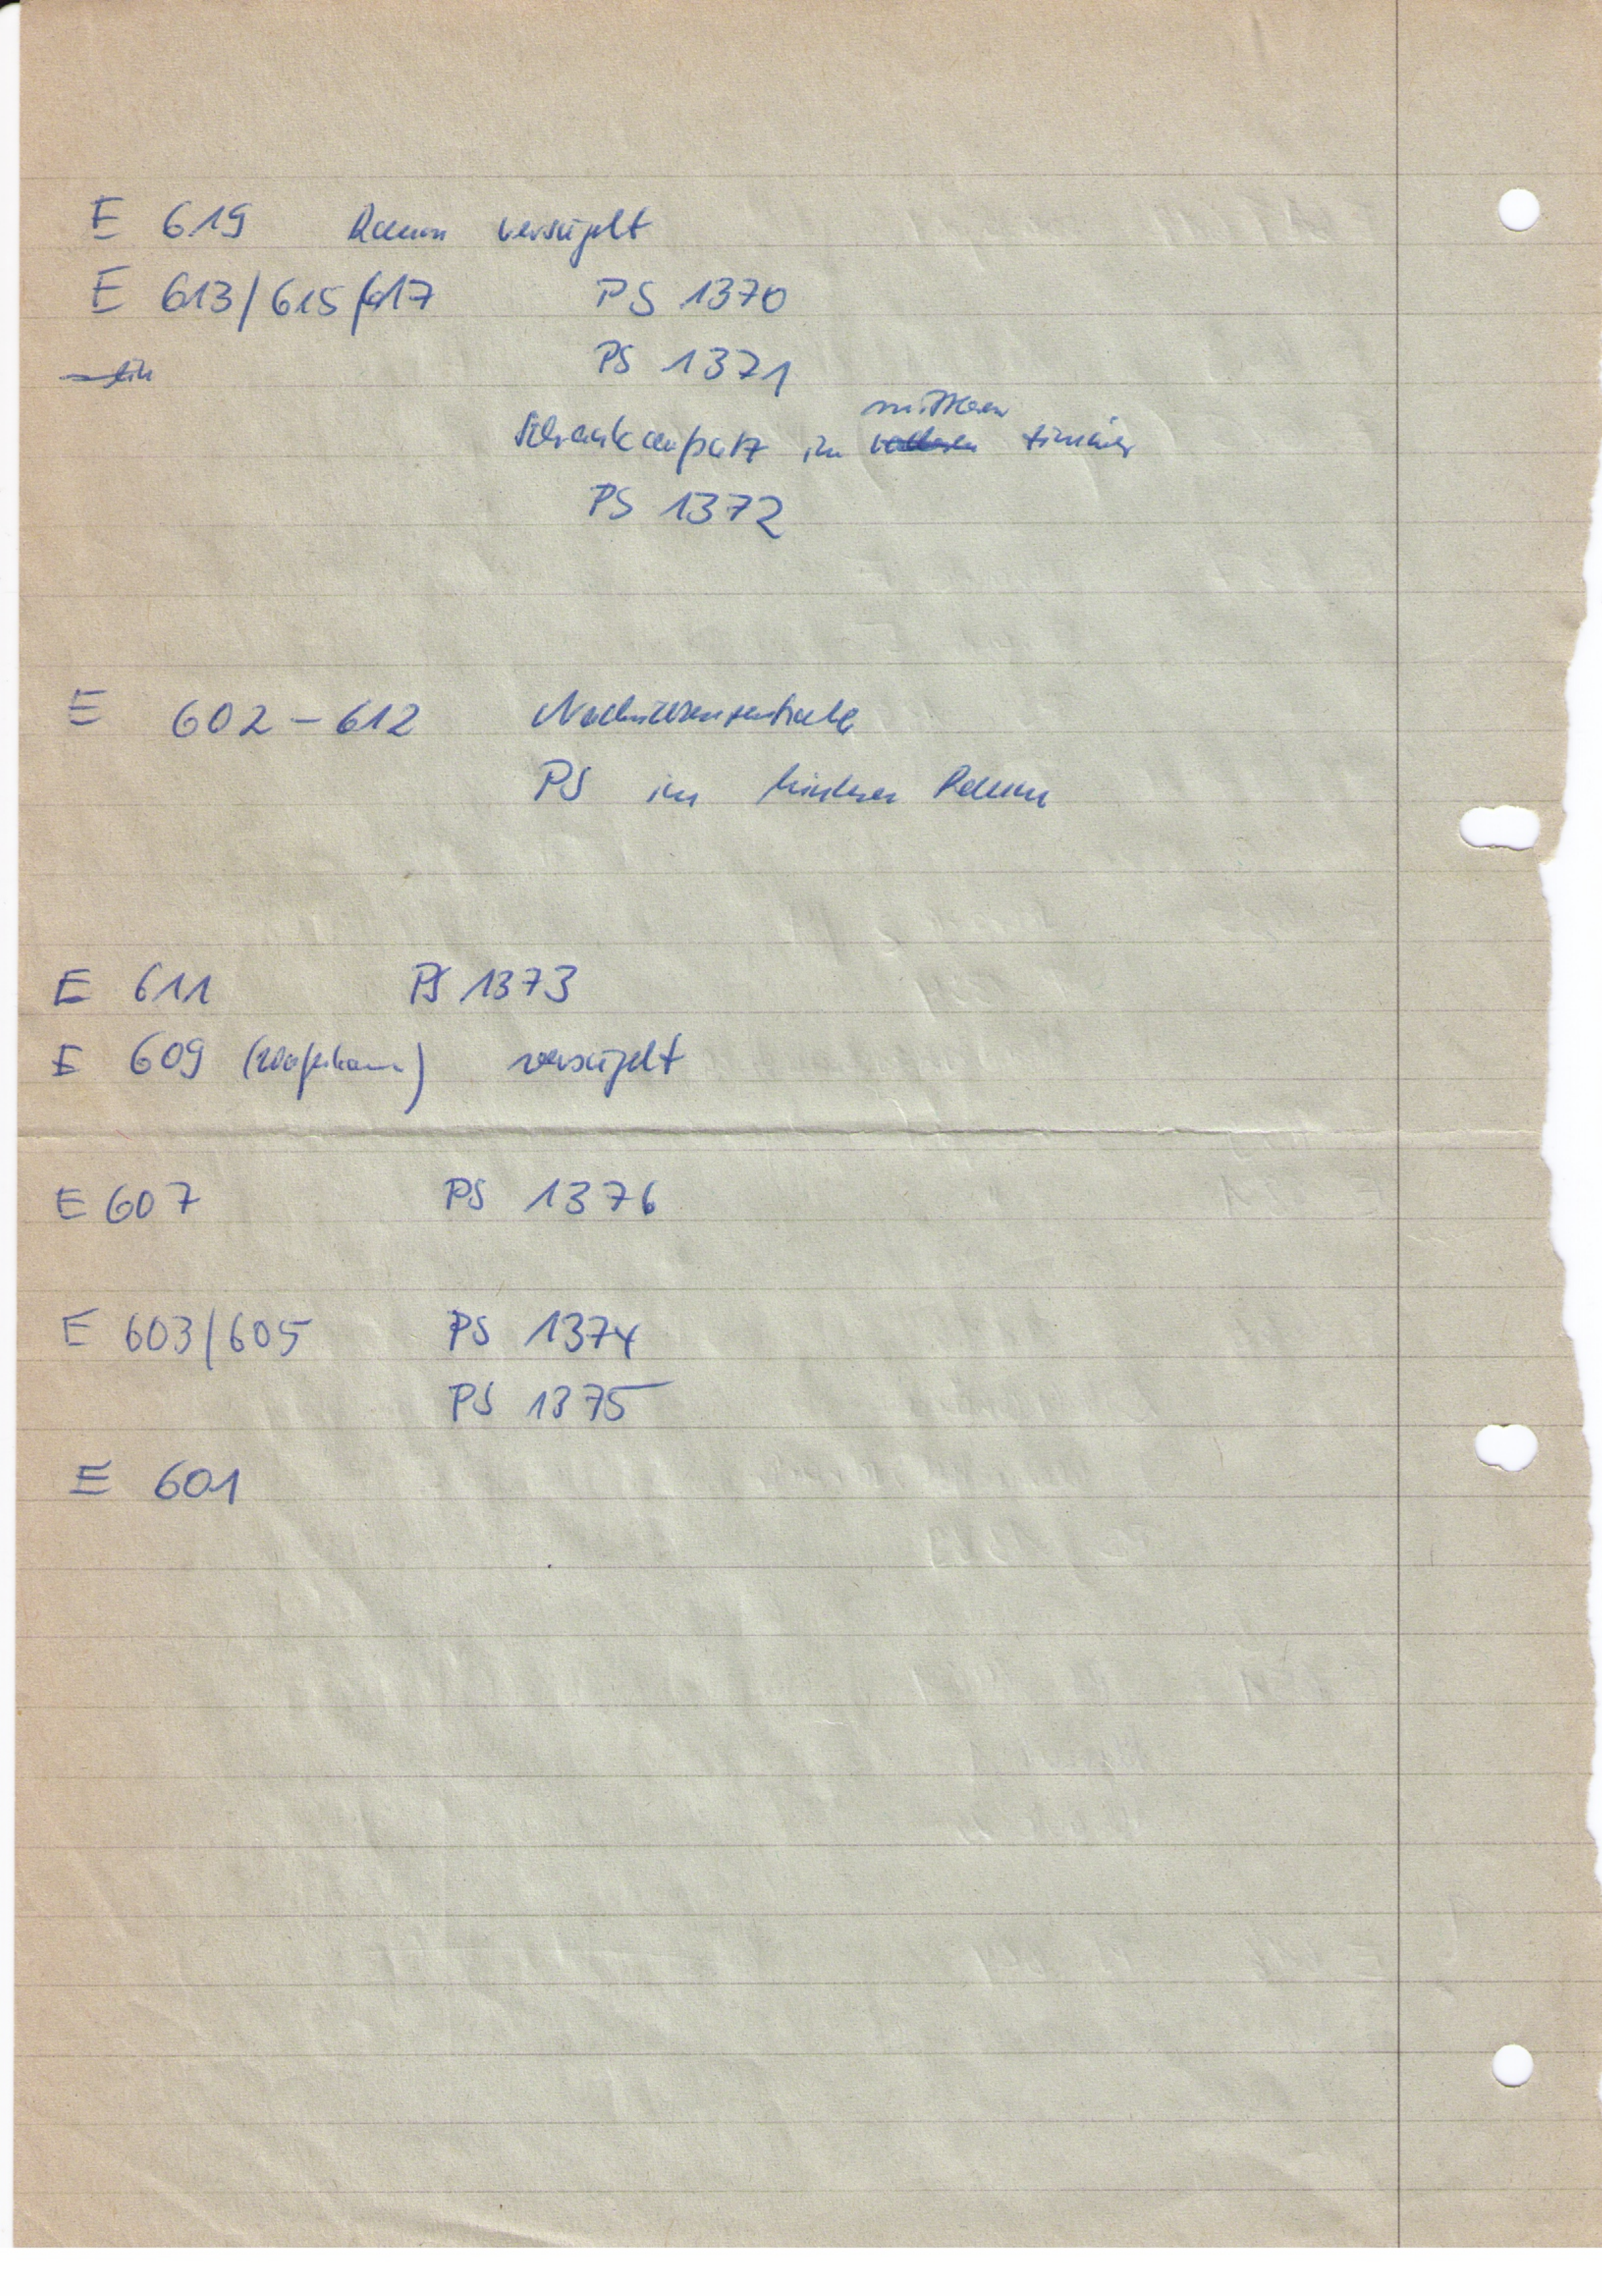 E 619 Raum versiegelt
E 613/615/617 PS 1370
PS 1371
mittleren
Schrankaufsatz im Zimmer
PS 1372
E 602 – 612 Nachrichtenzentrale
PS im hinteren Raum
E 611 PS 1373
E 609 (Waffenkammer) versiegelt
E 607 PS 1376
E 603/605 PS 1374
PS 1375
E 601